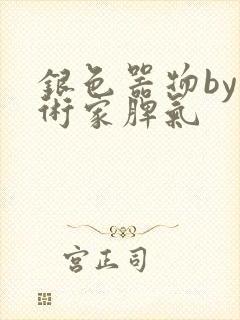 銀色器物by
術家脾氣
宮正司